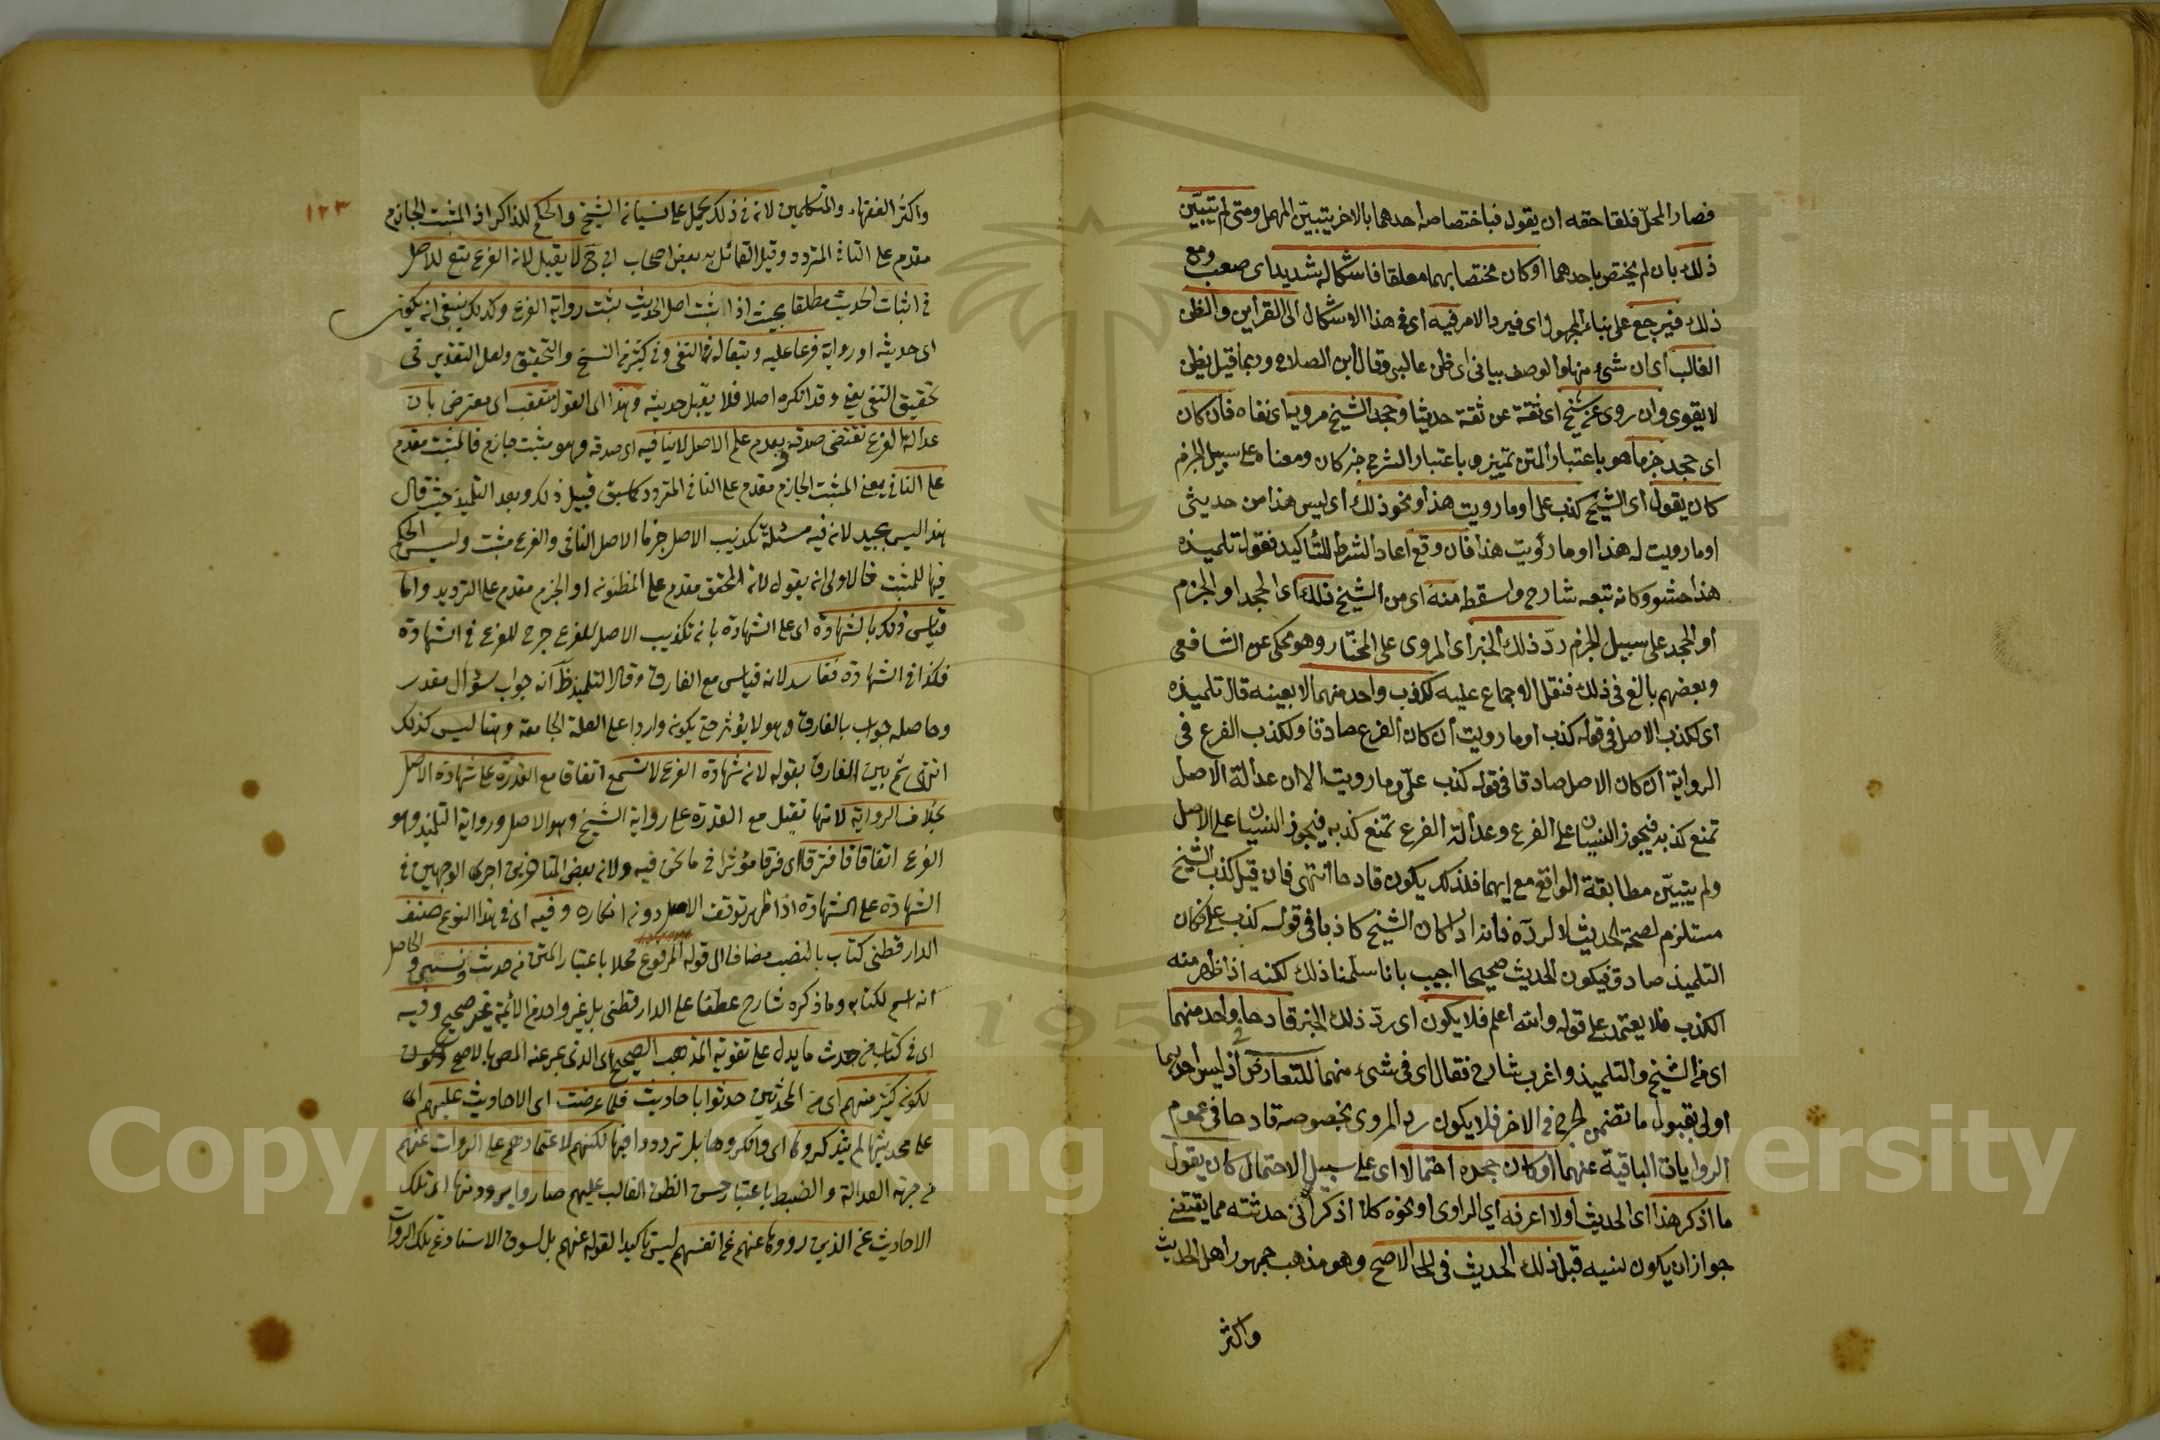 فصار المحلّ فلقا حقه ان يقول فباختصاصه احدهما بالاخر يتبيّن المهمل ومتى لم يتبيّن
ذلك بان لم يختص باحدهما او كان مختصا بهما معا فاشكاله شديد اى صعب ومع
ذلك فيرجع على بناء المجهول اى فيرد الامر فيه اى فى هذا الاشكال الى القراين والظن
الغالب اى ان شئ منها والوصف بيانى اى ظن غالبى وقال ابن الصلاح وربما قيل بظن
لا يقوى وان روى عن شيخ اى ثقة عن ثقة حديثا وجحد الشيخ مرويه اى نفاه فان كان
اى جحد جزما هو باعتبار المتن تمييز وباعتبار الشرح خبر كان ومعناه على سبيل الجزم
كان يقول اى الشيخ كذب على او ما رويت هذا او نحو ذلك اى ليس هذا من حديثى
او ما رويت له هذا او ما رؤيت هذا فان وقع اعاد الشرط للتأكيد فقول تلميذه
هذا حشو وكانه تبعه شارح واسقطه منه اى من الشيخ ذلك اى الجحد او الجزم
او الجحد على سبيل الجزم ردّ ذلك الخبر اى المروى على المختار وهو محكى عن الشافعى
وبعضهم بالغ فى ذلك فنقل الاجماع عليه لكذب واحد منهما لا بعينه قال تلميذه
اى لكذب الاصل فى قوله كذب او ما رويت ان كان الفرع صادقا ولكذب الفرع فى
الرواية ان كان الاصل صادقا فى قوله كذب علىّ وما رويت الا ان عدالة الاصل
تمنع كذبه فيجوز النسيان على الفرع وعدالة الفرع تمنع كذبه فيجوز النسيان على الاصل
ولم يتبيّن مطابقة الواقع مع ايهما فلذلك يكون قادحا انتهى فان قيل كذب الشيخ
مستلزم لصحة الحديث لا لردّه فانه اذا كان الشيخ كاذبا فى قوله كذب على كان
التلميذ صادق فيكون الحديث صحيحا اجيب بانا سلمنا ذلك لكنه اذا ظهر منه
الكذب فلا يعتمد على قوله والله اعلم فلا يكون اى ردّ ذلك الخبر قادحا واحد منهما
اى من الشيخ والتلميذ واغرب شارح فقال اى فى شئ منهما للتعارض اذ ليس احدهما
اولى بقبول ما تضمن لجرح فى الاخر فلا يكون رد المروى بخصوصه قادحا فى عموم
الروايات الباقية عنهما او كان جحده احتمالا اى على سبيل الاحتمال كان يقول
ما اذكر هذا اى الحديث او لا اعرفه اى الراوى او نحوه كلا اذكر انى حدثته مما يقتضى
جواز ان يكون نسيه قبل ذلك الحديث فى الاصح وهو مذهب جمهور اهل الحديث
واكثر
١٢٣
واكثر الفقهاء والمتكلمين لانه فى ذلك يحمل على نسيانه الشيخ والحكم للذاكر اذ المثبت الجازم
مقدم على النافى المتردد وقيل القائل به بعض اصحاب ابى ح لا يقبل لانه الفرع تبع للاصل
فى اثبات الحديث مطلقا بحيث اذا اثبت اصل الحديث يثبت رواية الفرع وكذلك ينبغى انه يكون
اى حديثه او رواية فرعا عليه وتبعا له فى النفى وفى كثير من النسخ والتحقيق ولعل التقدير فى
تحقيق النفى يعنى وقد انكره اصلا فلا يقبل حديثه وهذا اى القول متعقب اى معترض بان
عدالة الفرع تقتضى صدقه وعدم علم الاصل لا ينافيه اى صدقه وهو مثبت جازم فالمثبت مقدم
على النافى يعنى المثبت الجازم مقدم على النافى المتردد كما سبق قبيل ذلك وبعد التلميذ حيث قال
هذا ليس بجيد لانه فيه مسئلة تكذيب الاصل جزما الاصل النافى والفرع مثبت وليس الحكم
فيها للمثبت فالاولى انه يقول لانه المحقق مقدم على المظنونه او الجزم مقدم على الترديد واما
قياس ذلك بالشهادة اى على الشهادة بانه تكذيب الاصل للفرع جرح للفرع فى الشهادة
فكذا فى الشهادة ففاسد لانه قياس مع الفارق وقال التلميذ ظ انه جواب سؤال مقدر
وحاصله جواب بالفارق وهو لا يؤثر حتى يكونه واردا على العلة الجامعة وهنا ليس كذلك
انتهى ثم بين الفارق بقوله لانه شهادة الفرع لا تسمع اتفاقا مع القدرة على شهادة الاصل
بخلاف الرواية لانها تقبل مع القدرة على رواية الشيخ وهو الاصل ورواية التلميذ وهو
الفرع اتفاقا فافترقا اى فرقا مؤثرا فى ما نحن فيه ولانه بعض المتاخرين اجرى الوجهين فى
الشهادة على الشهادة اذا ظهر توقف الاصل دونه انكاره وفيه اى فى هذا النوع صنف
الدارقطنى كتاب بالنصب مضافا الى قوله المرفوع محلا باعتبار المتن من حدث ونسى والحاصل
انه اسم لكتابه وما ذكره شارح عطفا على الدارقطنى بل غير واحد من الائمة غير صحيح وفيه
اى فى كتاب من حدث ما يدل على تقوية المذهب الصحيح اى الذى عبر عنه المص بالاصح لكون
لكونه كثير منهم اى من المحدثين حدثوا باحاديث فلما عرضت اى الاحاديث عليهم اى
على محدثيها لم يتذكروها اى وانكروها بل ترددوا فيها لكنهم لاعتمادهم على الروات عنهم
من جهة العدالة والضبط باعتبار حسن الظن الغالب عليهم صاروا يروونها اى تلك
الاحاديث عن الذين رووها عنهم عن انفسهم ليس تاكيدا لقوله عنهم بل لسوق الاسناد عن تلك الروات
Copyright © King Saud University
1957